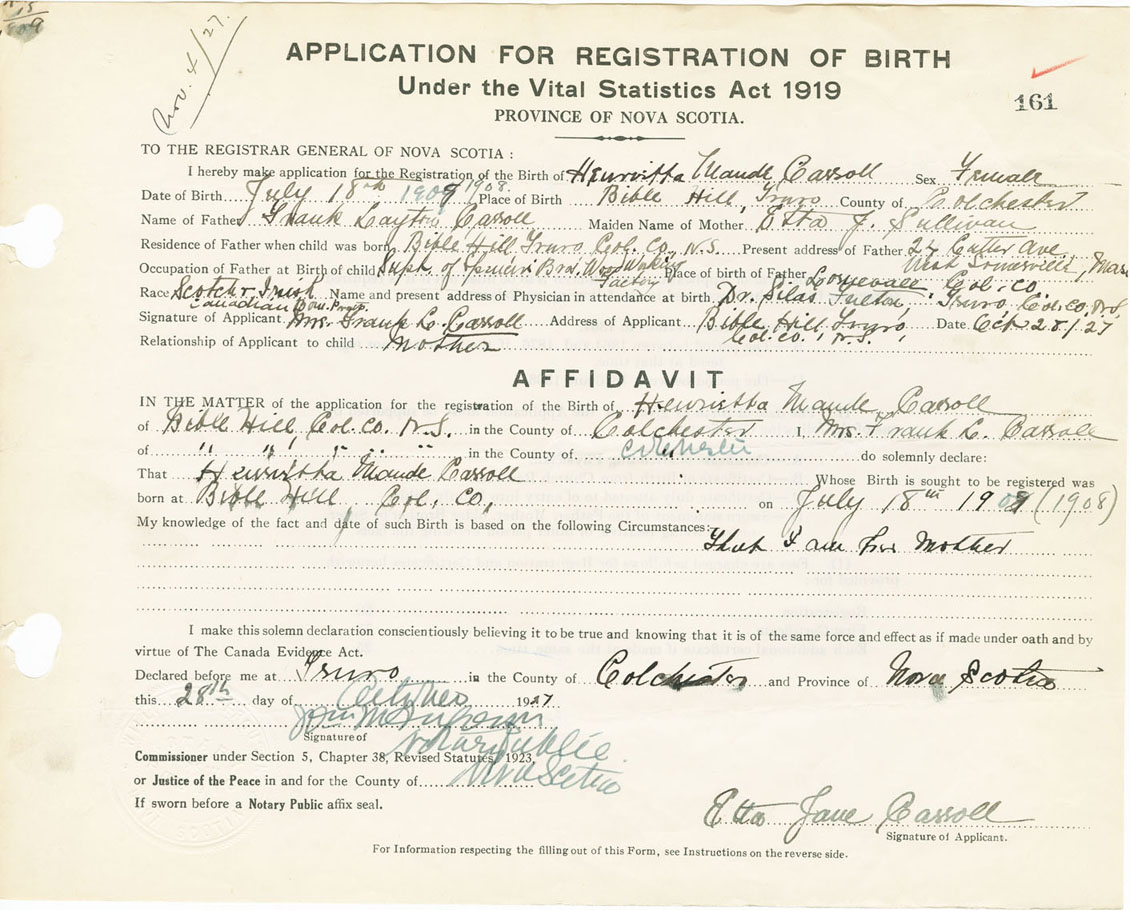 Nov. 4/27.
APPLICATION FOR REGISTRATION OF BIRTH
Under the Vital Statistics Act 1919
161
PROVINCE OF NOVA SCOTIA.
TO THE REGISTRAR GENERAL OF NOVA SCOTIA :
I hereby make application for the Registration of the Birth of Henrietta Maude Carroll Sex Female
Date of Birth July 18th 1909 1908. Place of Birth Bible Hill, Truro County of Colchester
Name of Father Frank Layton Carroll Maiden Name of Mother Etta J. Sullivan
Residence of Father when child was born Bible Hill Truro Col. Co. N.S. Present address of Father 24 Cutter Ave
West Somerville, Mass
Occupation of Father at Birth of child Supt. of Bros. Wood Working Place of birth of Father Col. Co
Factory
Race Scotch & Irish Name and present address of Physician in attendance at birth Dr. Silas Fulton, Truro, Col. Co. N.S.
Canadian
Signature of Applicant Mrs. Frank L. Carroll Address of Applicant Bible Hill Truro Date Oct 28/27
Col. Co., N.S.,
Relationship of Applicant to child Mother
AFFIDAVIT
IN THE MATTER of the application for the registration of the Birth of Henrietta Maude Carroll
of Bible Hill, Col. Co. N.S. in the County of Colchester I, Mrs. Frank L. Carroll
of " " " " " in the County of Colchester do solemnly declare:
That Henrietta Maude Carroll Whose Birth is sought to be registered was
born at Bible Hill, Col, Co, on July 18th 1909 (1908)
My knowledge of the fact and date of such Birth is based on the following Circumstances:
That I am her Mother
I make this solemn declaration conscientiously believing it to be true and knowing that it is of the same force and effect as if made under oath and by
virtue of The Canada Evidence Act.
Declared before me at Truro in the County of Colchester and Province of Nova Scotia
this 28th day of October 1927
Signature of
Notary Public
Commissioner under Section 5, Chapter 38, Revised Statutes, 1923,
or Justice of the Peace in and for the County of Nova Scotia
If sworn before a Notary Public affix seal.
Etta Jane Carroll
Signature of Applicant.
For Information respecting the filling out of this Form, see Instructions on the reverse side.